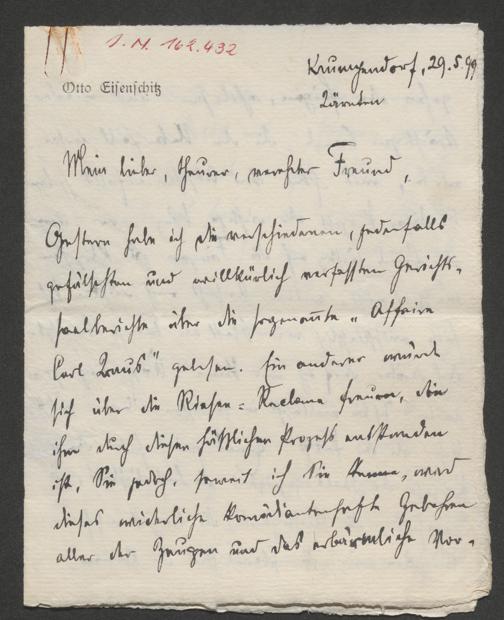 J. N. 162.432
Otto Eisenschitz
Krumpendorf, 29.5.99
Kärnten
Mein lieber, theurer, verehrter Freund,
Gestern habe ich die verschiedenen, jedenfalls
gefälschten und willkürlich verfassten Gerichts-
saalberichte über die sogenannte „Affaire
Carl Kraus" gelesen. Ein anderer würde
sich über die Riesen-Reclame freuen, die
ihm durch diesen hässlichen Prozeß entstanden
ist, Sie jedoch, soweit ich Sie kenne, wird
dieses widerliche komödiantenhafte Gebahren
aller der Zeugen und das erbärmliche Vor-